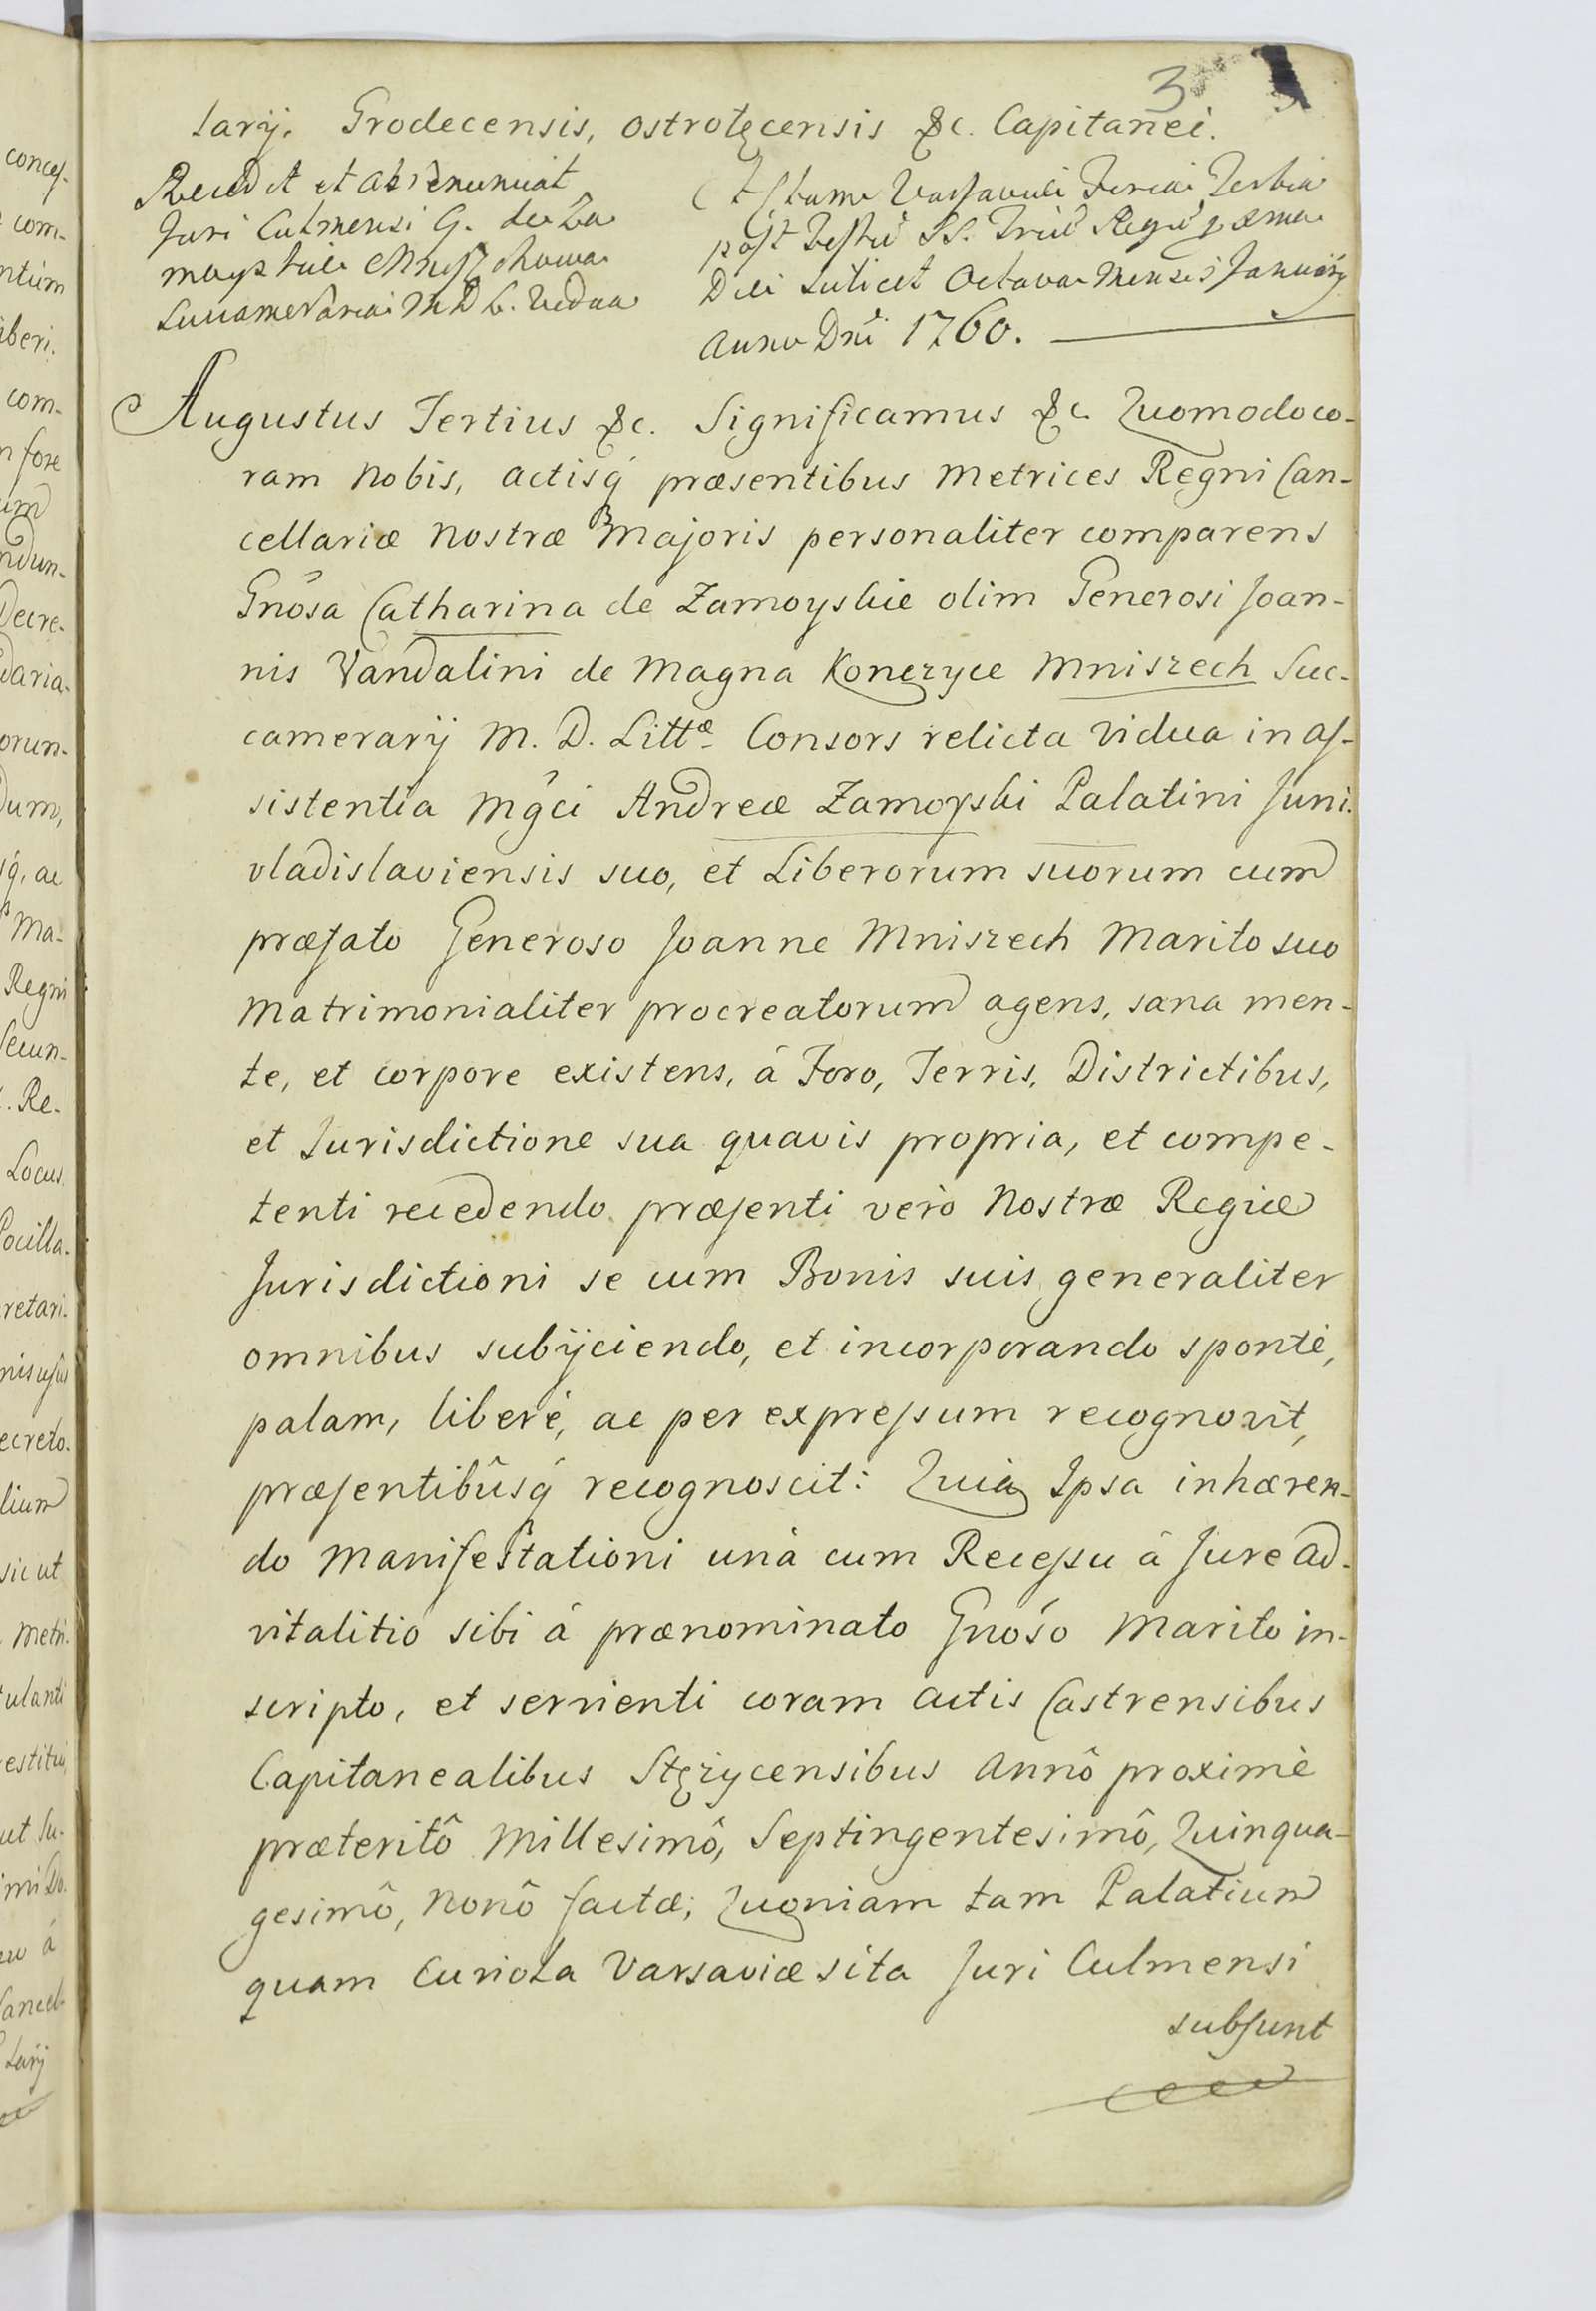 3
larÿ, Grodecensis, Ostrołęcensis &c. Capitanei.
Recedit et abrenunciat
Juri Culmensi G. de Za
moyskie Mniszchowa
Succameraria M D L. Vidua
Actum Varsaviæ Feria Tertia
post Festũ SS. Triũ Regũ pxma
Die scilicet Octava Mensis Januarÿ
Anno Dnĩ 1760.
Augustus Tertius &c. Significamus &c. Quomodo co-
ram Nobis, Actisq́ præsentibus Metrices Regni Can-
cellariæ Nostræ Majoris personaliter comparens
Gnõsa Catharina de Zamoyskie olim Generosi Joan-
nis Vandalini de Magna Konczyce Mniszech Suc-
camerarÿ M. D. Littæ Consors relicta Vidua in as-
sistentia Mgĉi Andreæ Zamoyski Palatini Juni-
vladislaviensis suo, et Liberorum suorum cum
præfato Generoso Joanne Mniszech Marito suo
Matrimonialiter procreatorum agens, sana men-
te, et corpore existens, á Foro, Terris, Districtibus,
et Jurisdictione sua quavis propria, et compe-
tenti recedendo, præsenti verò Nostræ Regiæ
Jurisdictioni se cum Bonis suis generaliter
omnibus subÿciendo, et incorporando spontè,
palam, liberè, ac per expressum recognovit,
præsentibûsq́ recognoscit: Quia Ipsa inhæren-
do Manifestationi unà cum Recessu á Jure Ad-
vitalitio sibi á prænominato Gnóso Marito in-
scripto, et servienti coram Actis Castrensibus
Capitanealibus Stężycensibus Annô proximè
præteritô Millesimô, Septingentesimô, Quinqua-
gesimô, Nonô factæ; Quoniam tam Palatium
quam Curiola Varsaviæ sita Juri Culmensi
subsunt